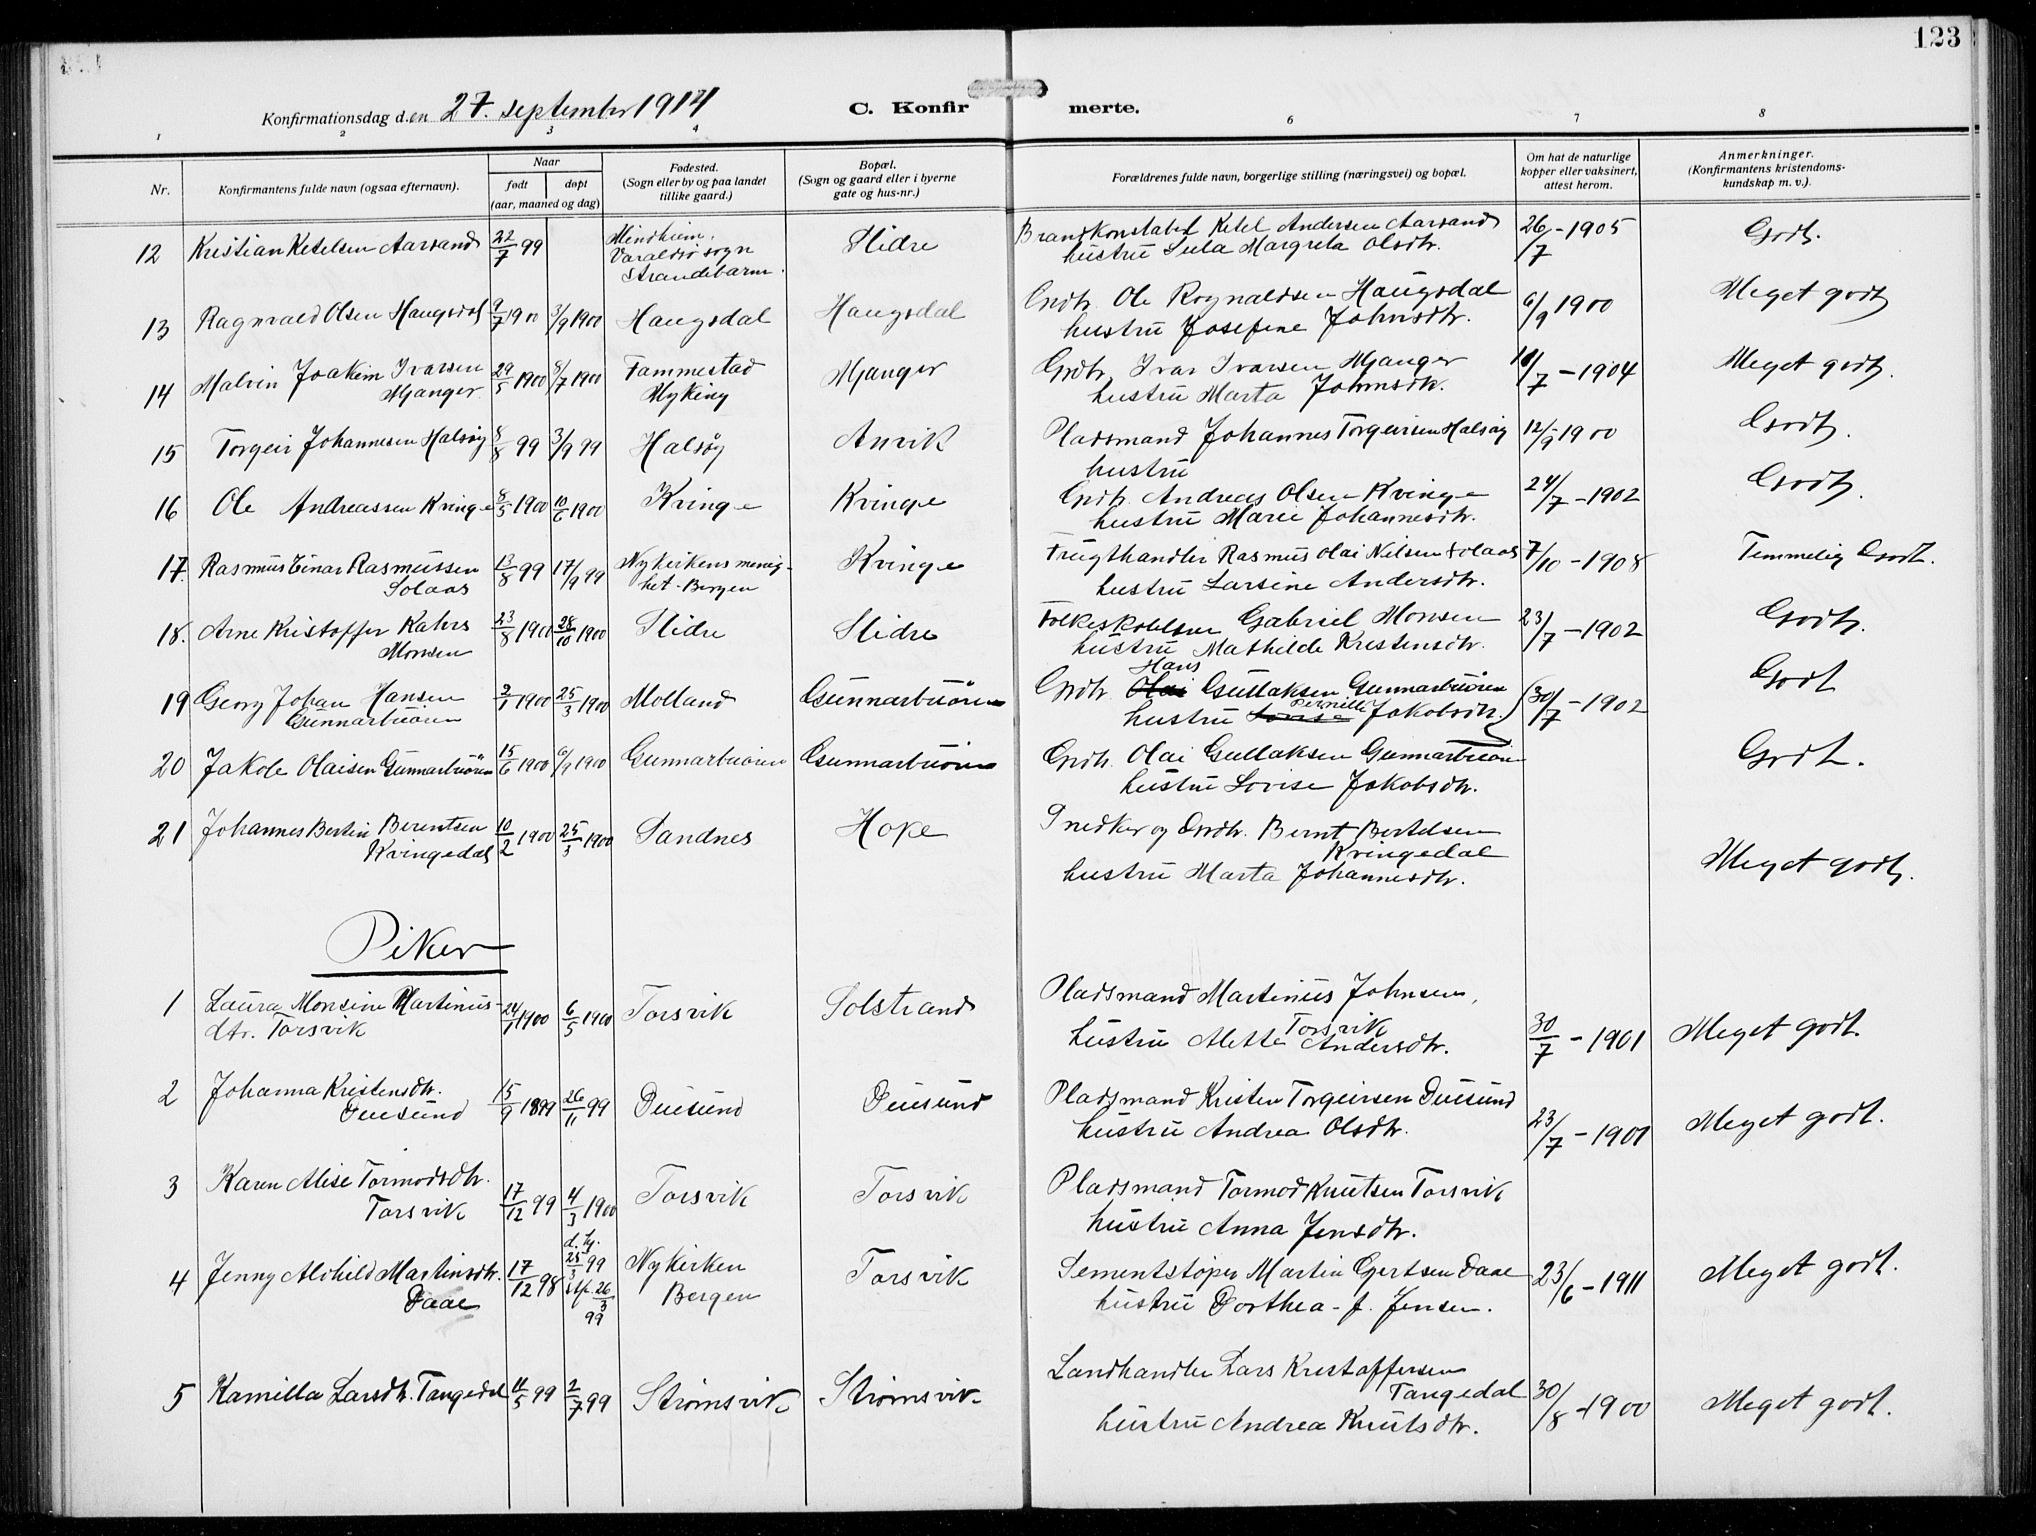 123
Konfirmationsdag den 27. september 1914
C. Konfirmerte.
1 2 3 4 6 7 8
Nr.
Konfirmantens fulde navn (ogsaa efternavn).
Naar
født døpt
(aar, maaned og dag)
Fødested.
(Sogn eller by og paa landet
tillike gaard.)
Bopæl.
(Sogn og gaard eller i byerne
gate og hus-nr.)
Forældrenes fulde navn, borgerlige stilling (næringsvei) og bopæl.
Om hat de naturlige
kopper eller vaksinert,
attest herom.
Anmerkninger.
(Konfirmantens kristendoms-
kundskap m. v.).
12 Kristian Ketelsen Aarsand 22/7 99 Mindheim. Slidre Brandkonstabel Ketel Andersen Aarsand 26/7 - 1905 Godt.
Varaldsø sogn hustru Margreta Olsdtr.
Strandebarm.
13 Ragnvald Olsen Haugsdal 9/7 1900 3/9 1900 Haugsdal Haugsdal Grdbr. Ole Rognaldsen Haugsdal 6/9 1900 Meget godt
hustru Josefine Johnsdtr.
14 Malvin Joakim Ivarsen 29/5 1900 8/7 1900 Fammestad Mjanger Grdbr. Ivar Ivarsen Mjanger 11/7 - 1904 Meget godt.
Mjanger Myking hustru Marta Johnsdtr.
15 Torgeir Johannesen Halsøy 8/8 99 3/9 99 Halsøy Anvik Pladsmand Johannes Torgeirsen Halsøy 12/9 1900 Godt.
hustru
16 Ole Andreassen Kvinge 8/5 1900 10/6 1900 Kvinge Kvinge Grdbr. Andreas Olsen Kvinge 24/7 - 1902 Godt.
hustru Marie Johannesdtr.
17. Rasmus Einar Rasmussen 13/8 99 17/9 99 Nykirkens menig- Kvinge Frugthandler Rasmus Olai Nilsen Solaas 7/10 - 1908 Temmelig Godt.
Solaas het - Bergen hustru Larsine Andersdtr.
18. Arne Kristoffer Kahrs 23/8 1900 28/10 1900 Slidre Slidre Gabriel Monsen 23/7 - 1902 Godt.
Monsen hustru Mathilde Kristensdtr.
19 Georg Johan Hansen 2/1 1900 25/3 1900 Molland Gunnarbuøren Grdbr. Olai Hans Gullaksen Gunnarbuøren 30/7 - 1902 Godt
Gunnarbuøren hustru Lovise Pernille Jakobsdtr.
20 Jakob Olaisen Gunnarbuøren 15/6 1900 6/9 1900 Gunnarbuøren Gunnarbuøren Grdbr. Olai Gullaksen Gunnarbuøren Godt.
hustru Lovise Jakobsdtr.
21 Johannes Bertin Berentsen 10/2 1900 25/3 1900 Sandnes Hope Snedker og Grdbr. Bernt Bertelsen
Kvingedal Kvingedal Meget godt.
hustru Marta Johannesdtr.
Piker
1 Laura Monsine Martinus- 24/1 1900 6/5 1900 Torsvik Solstrand Pladsmand Martinus Johnsen,
dtr. Torsvik Torsvik 30/7 - 1901 Meget godt.
hustru Mette Andersdtr.
2 Johanna Kristensdtr. 15/9 1899 26/11 99 Duesund Duesund Pladsmand Kristen Torgeirsen Duesund Meget godt.
Duesund hustru Andrea Olsdtr. 23/7 - 1901
3 Karen Alise Tormodsdtr. 17/12 99 4/3 1900 Torsvik Torsvik Pladsmand Tormod Knutsen Torsvik
Torsvik hustru Anna Jensdtr.
4 Jenny Alvhild Martinsdtr. 17/12 98 d. hj. 25/3 99 Nykirken Torsvik Sementstøper Martin Gjertsen Daae 23/6 - 1911 Meget godt.
Daae stf. 26/3 99 Bergen hustru Dorthea - J. Jensen.
5 Kamilla Larsdtr. Tangedal 11/5 99 2/7 99 Strømsvik Strømsvik Landhandler Lars Kristoffersen
Tangedal 30/8 - 1900 Meget godt.
hustru Andrea Knutsdtr.